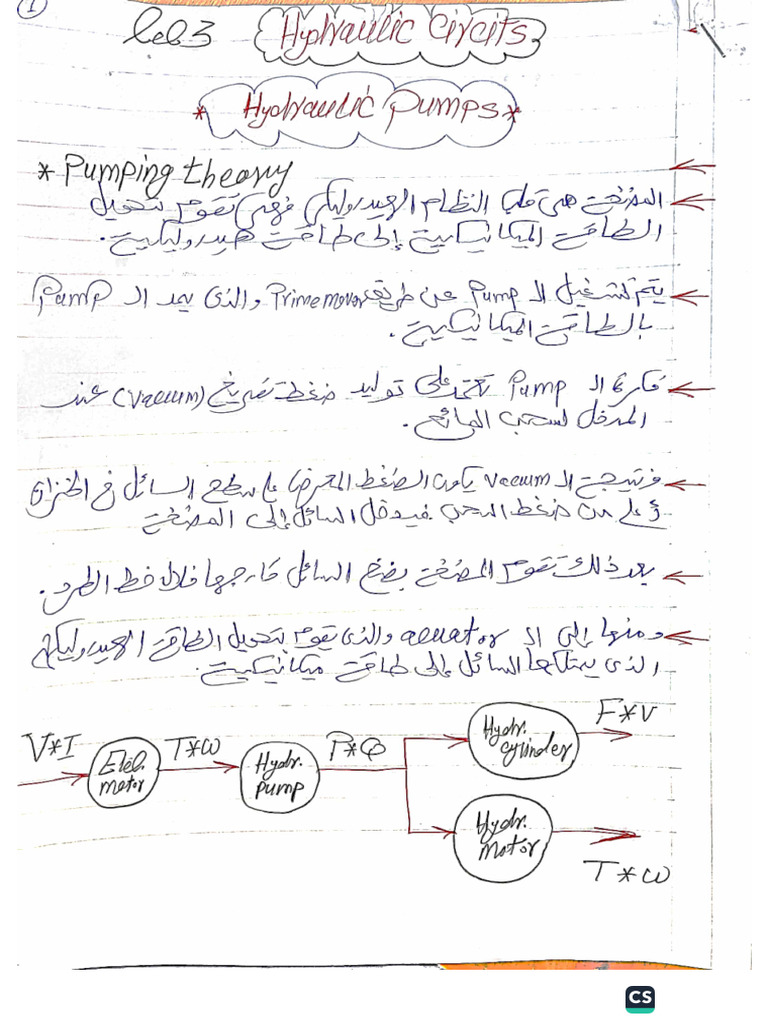 1
Lec 3 Hydraulic Circits
* Hydraulic Pumps *
* Pumping theory
المضخة هى قلب النظام الهيدروليكى فهى تقوم بتحويل
الطاقة الميكانيكية إلى طاقة هيدروليكية.
يتم تشغيل الـ Pump عن طريق Prime mover والذى يمد الـ Pump
بالطاقة الميكانيكية.
فكرة الـ Pump تعتمد على توليد ضغط تفريغ (Vacuum) عند
المدخل لسحب المائع.
فنتيجة الـ vacuum يكون الضغط المعرض على سطح السائل فى الخزان
أعلى من ضغط السحب فيدخل السائل إلى المضخة
بعد ذلك تقوم المضخة بضخ السائل خارجها خلال خط الطرد.
ومنها إلى الـ acuator والذى يقوم بتحويل الطاقة الهيدروليكية
الذى يمتلكها السائل إلى طاقة ميكانيكية.
V*I
Elec. motor
T*ω
Hydr. pump
P*Q
Hydr. cylinder
F*v
Hydr. motor
T*ω
CS